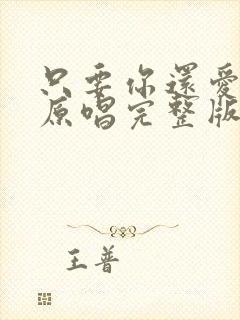 只要你還愛
原唱完整版
王普